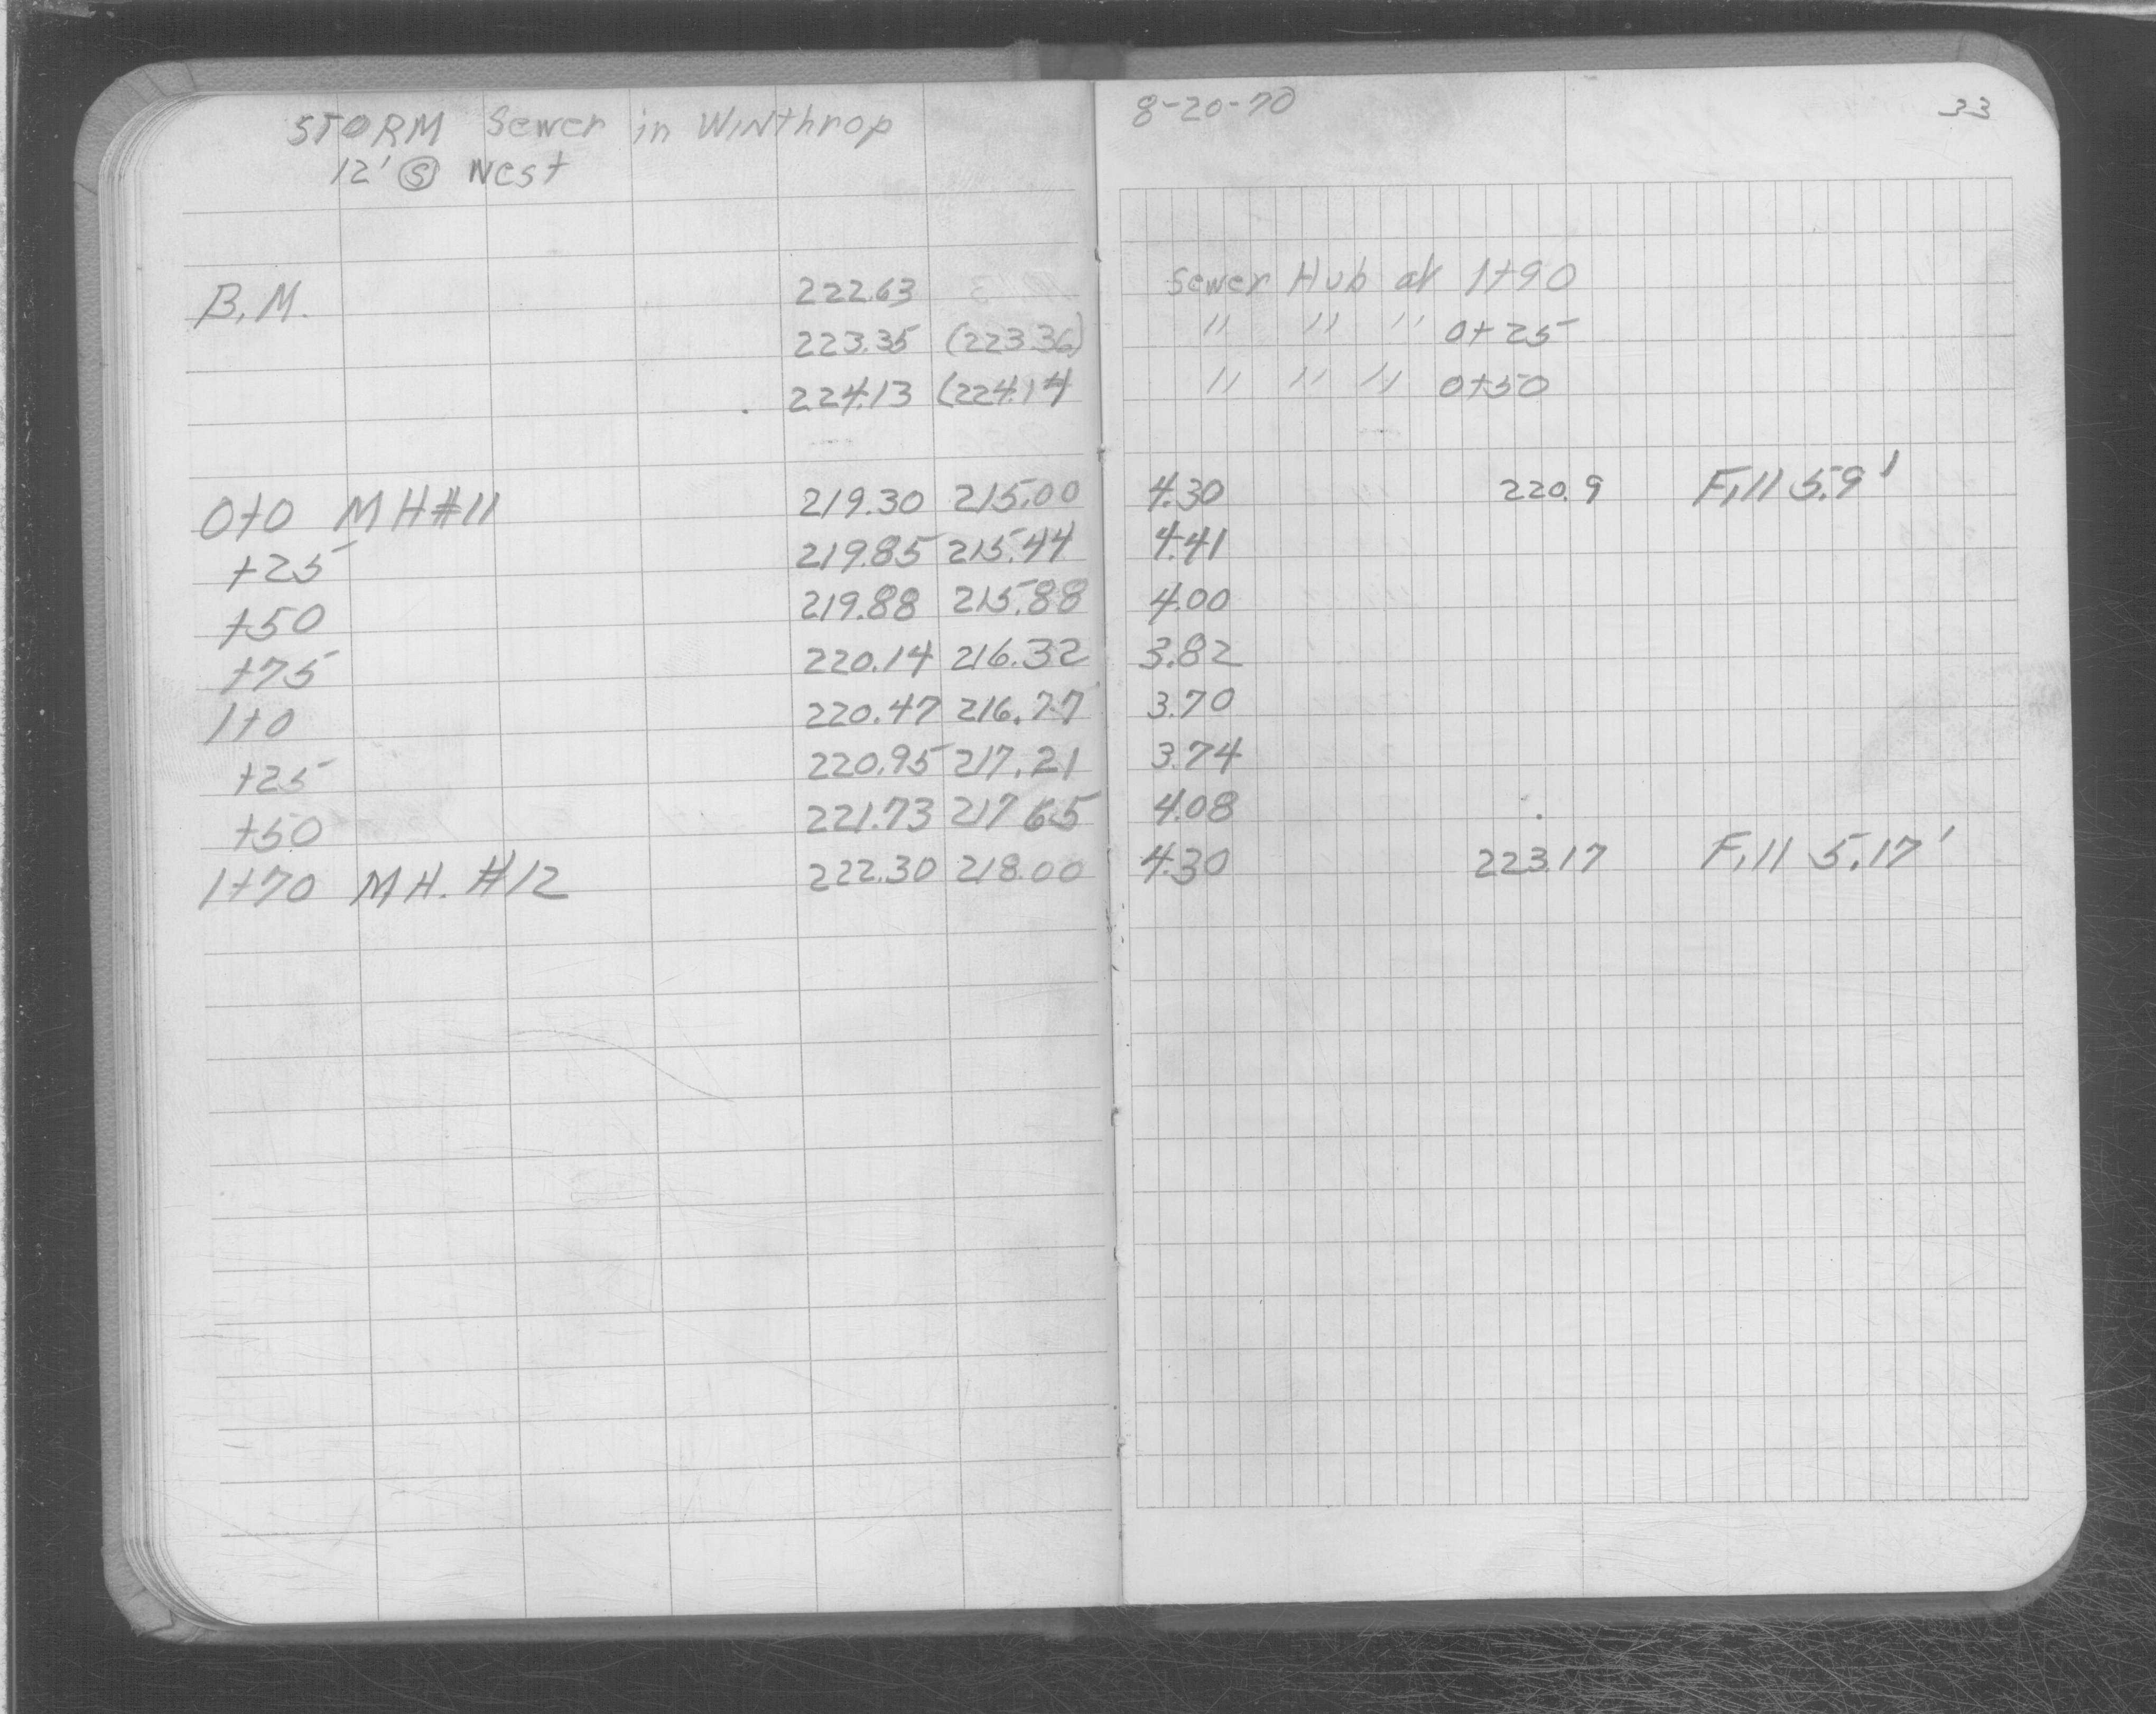 STORM Sewer in WINthrop
12' Ⓢ West
8-20-70 33
B.M. 222.63 Sewer Hub at 1+90
223.35 (223.36) " " " 0+25
224.13 (224.14 " " " 0+50
0+0 MH#11 219.30 215.00 4.30 220.9 Fill 5.9'
+25 219.85 215.44 4.41
+50 219.88 215.88 4.00
+75 220.14 216.32 3.82
1+0 220.47 216.77 3.70
+25 220.95 217.21 3.74
+50 221.73 217 65 4.08
1+70 MH. #12 222.30 218.00 4.30 223.17 Fill 5.17'